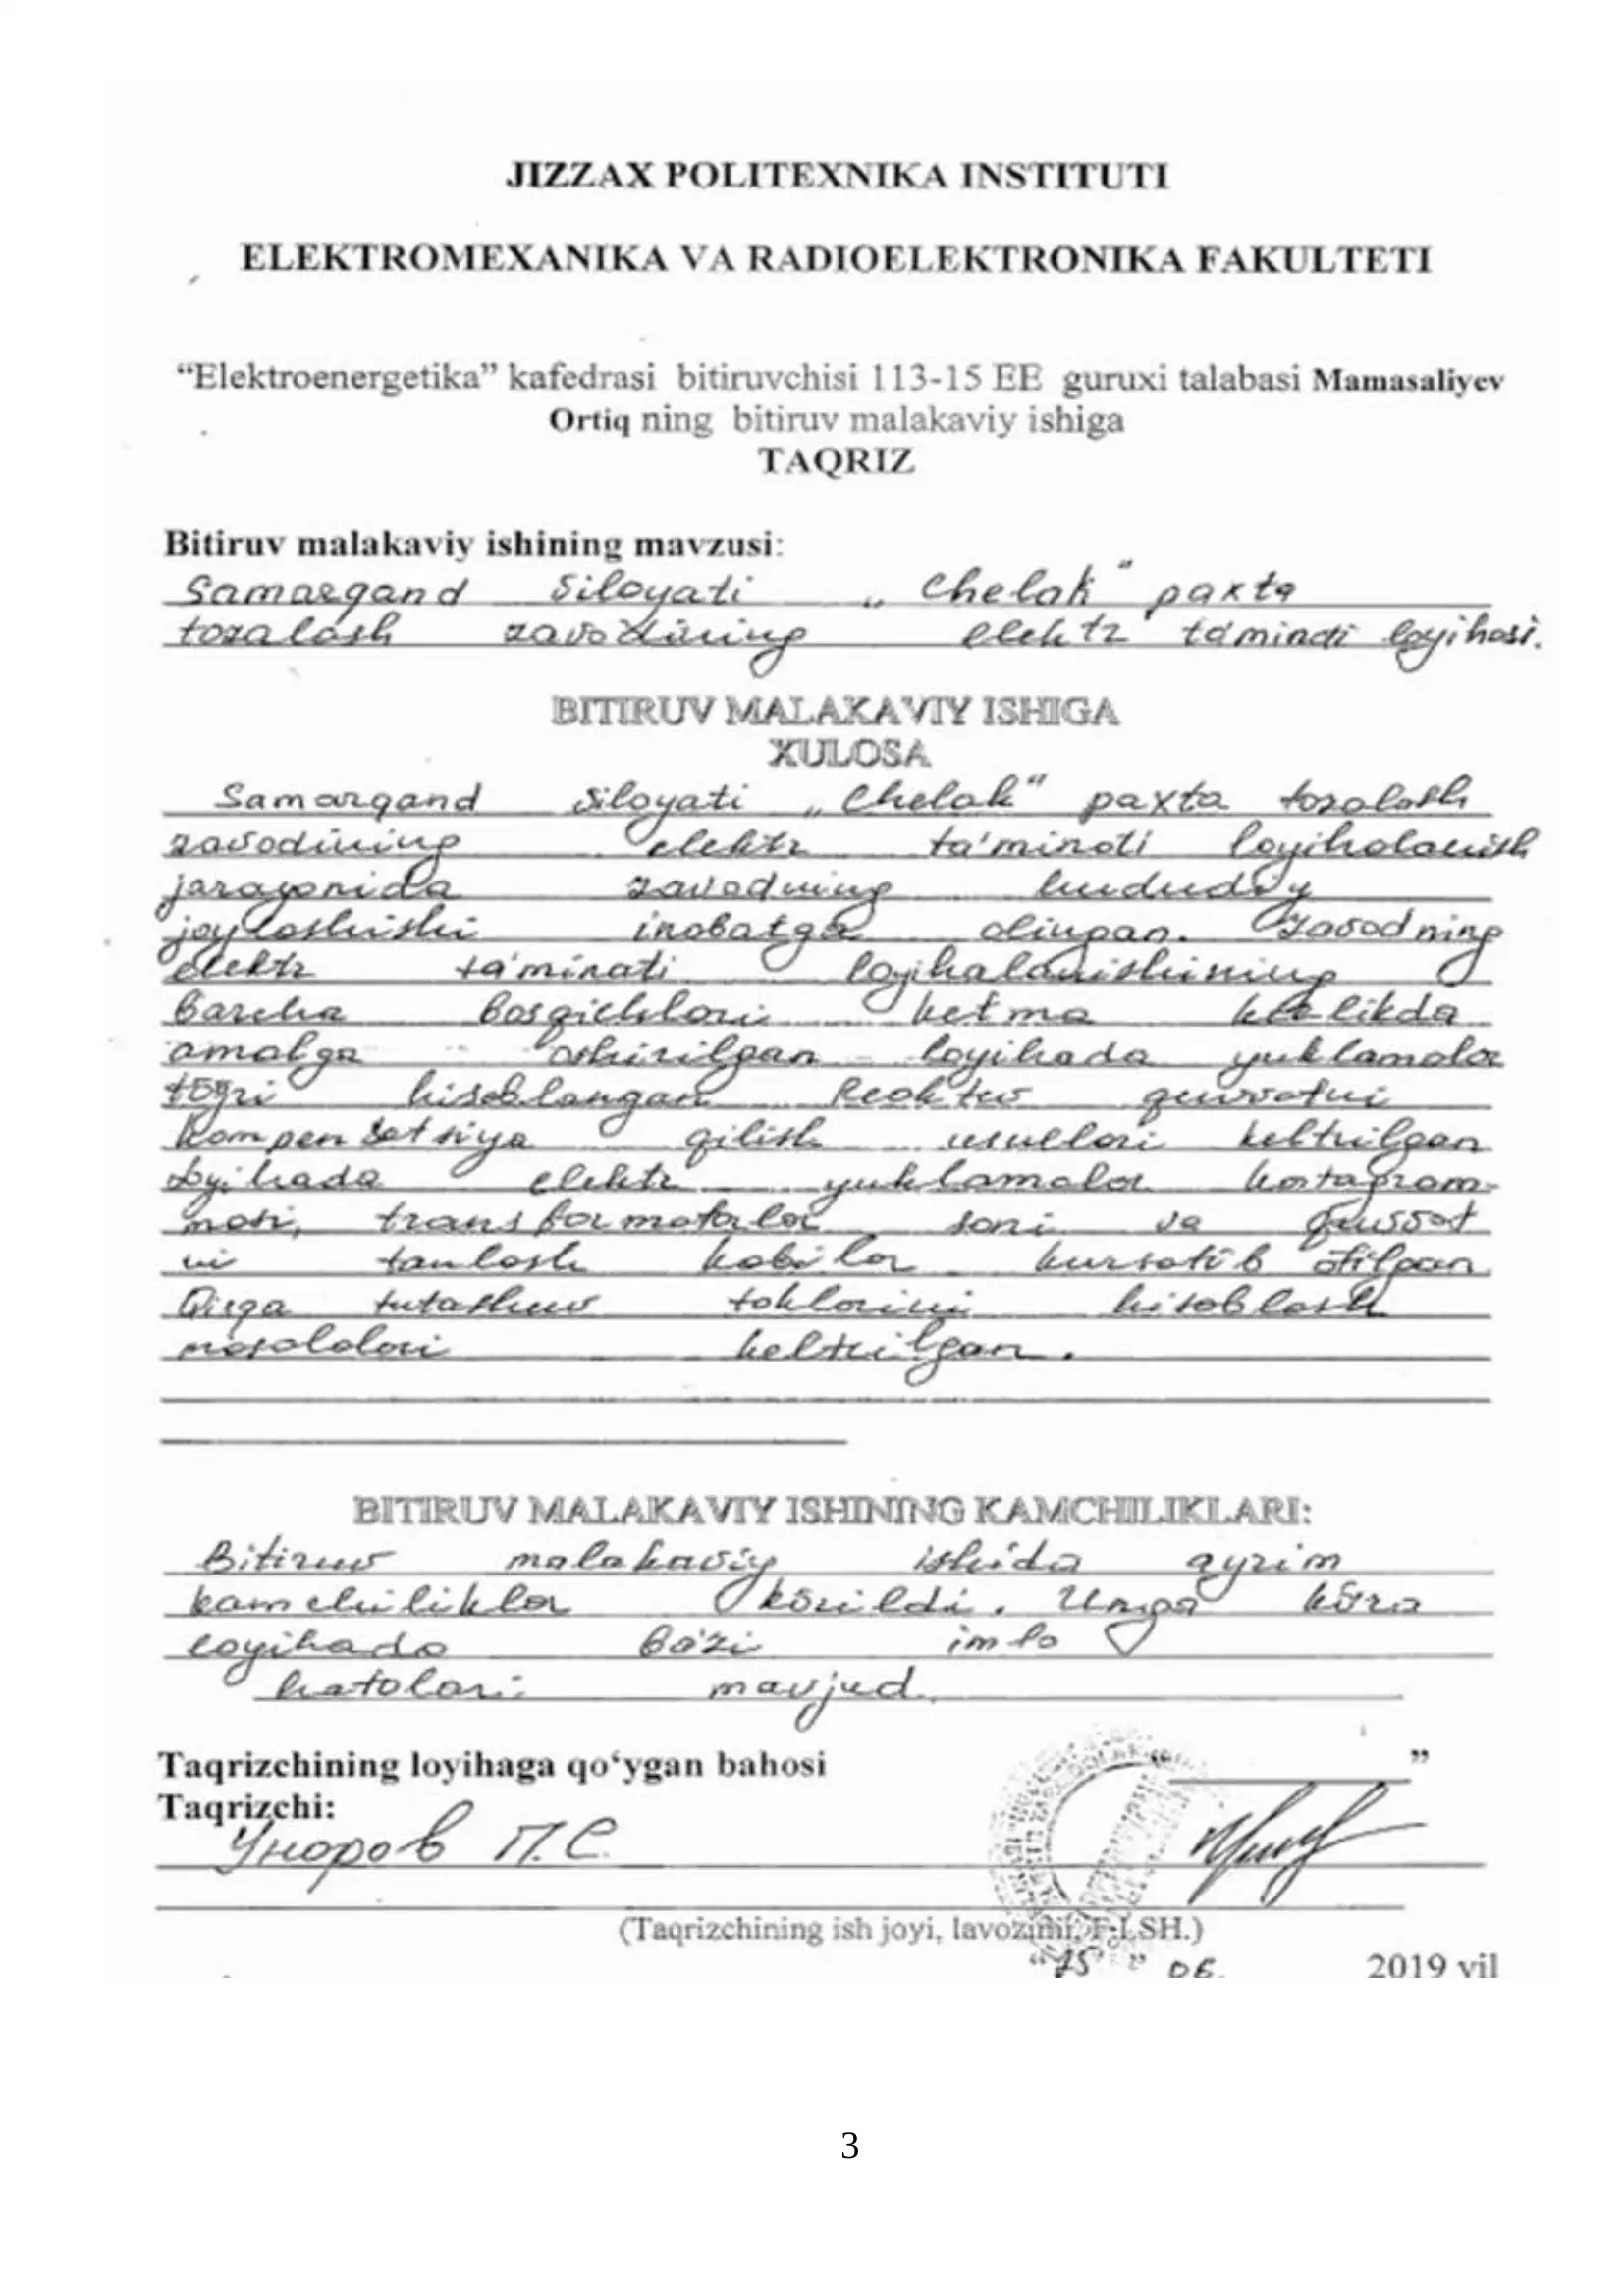 JIZZAX POLITEXNIKA INSTITUTI
ELEKTROMEXANIKA VA RADIOELEKTRONIKA FAKULTETI
“Elektroenergetika” kafedrasi bitiruvchisi 113-15 EE guruxi talabasi Mamasaliyev
Ortiq ning bitiruv malakaviy ishiga
TAQRIZ
Bitiruv malakaviy ishining mavzusi:
Samarqand viloyati „Chelak“ paxta
tozalash zavodining elektr ta'minoti loyihasi.
BITIRUV MALAKAVIY ISHIGA
XULOSA
Samarqand viloyati „Chelak“ paxta tozalash
zavodining elektr ta'minoti loyihalanish
jarayonida zavodning hududiy
joylashishi inobatga olingan. Zavodning
elektr ta'minati loyihalanishining
barcha bosqichlari ketma ketlikda
amalga oshirilgan loyihada yuklamalar
tõğri hisoblangan Reaktiv quvvatni
kompensatsiya qilish usullari keltirilgan
Loyihada elektr yuklamalar kartagram-
masi, transformatorlar soni va quvvat
ni tanlash kabilar kursatib õtilgan
Qisqa tutashuv toklarini hisoblash
masalalari keltirilgan.
BITIRUV MALAKAVIY ISHINING KAMCHILIKLARI:
Bitiruv malakaviy ishida ayrim
kamchiliklar kõrildi. Unga kõra
loyihada ba'zi imlo
hatolari mavjud.
Taqrizchining loyihaga qo‘ygan bahosi “ ”
Taqrizchi:
Уноров П.С.
(Taqrizchining ish joyi, lavozimi, F.I.SH.)
“15” 06. 2019 yil
3